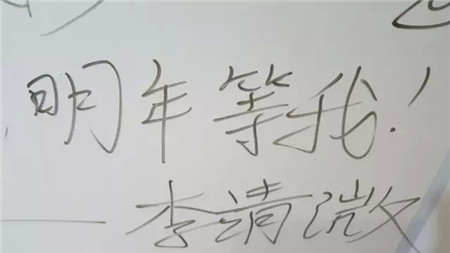 明年等我!
——李靖微